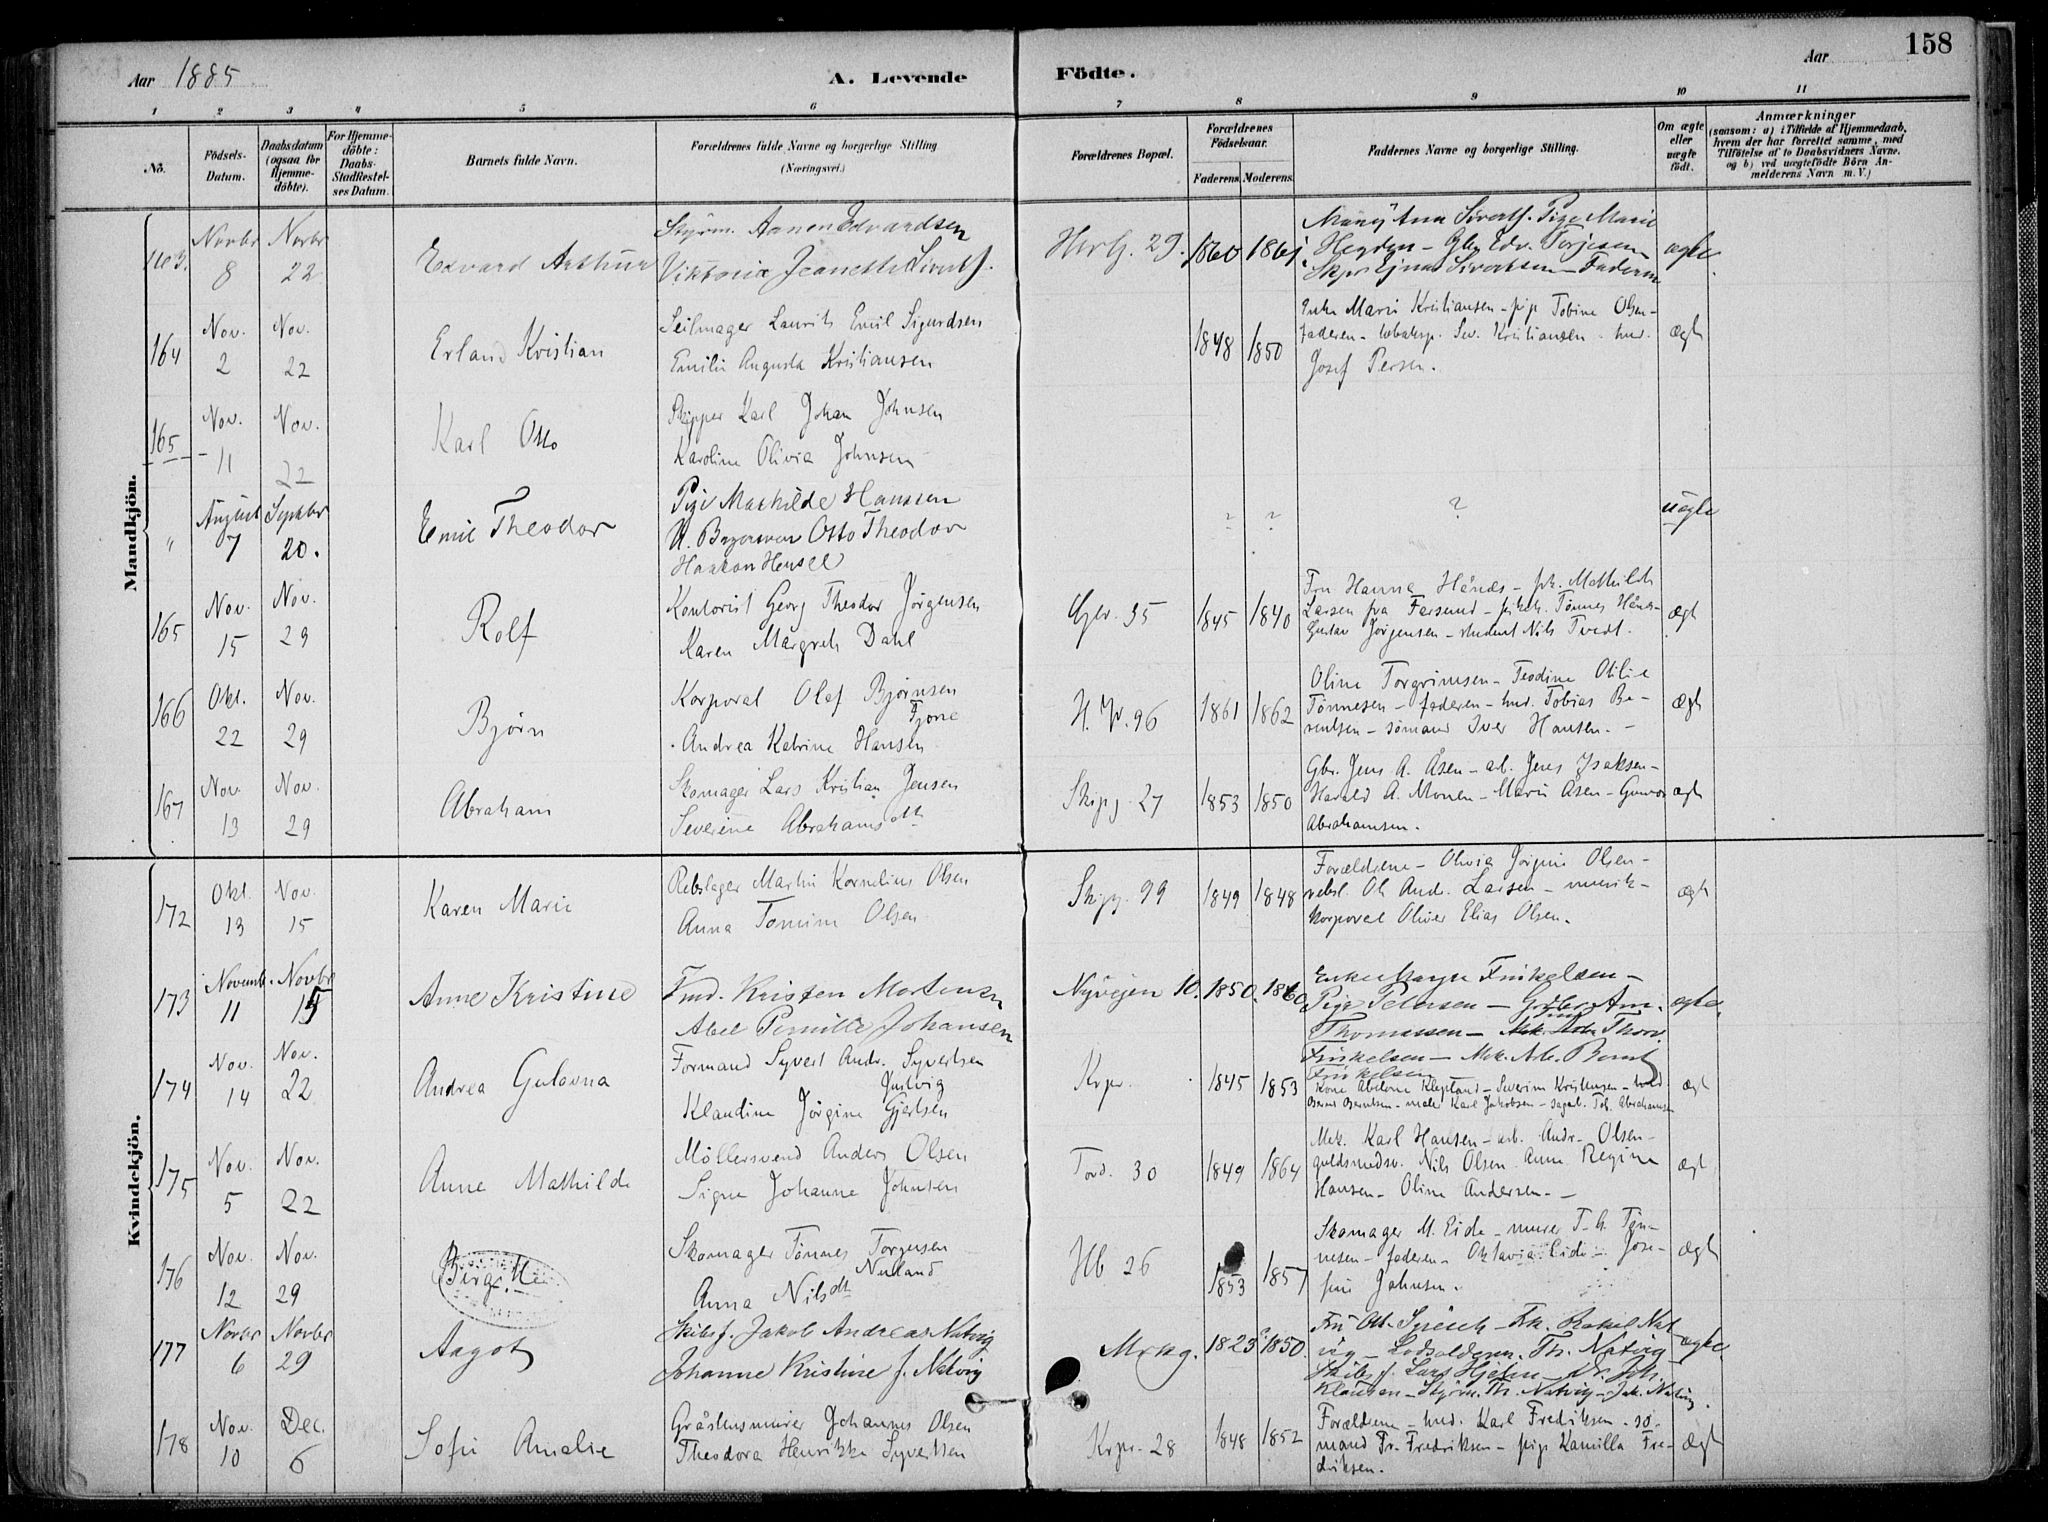 158
Aar 1885
A. Levende
Födte.
Aar
1 2 3 4 5 6 7 8 9 10 11
No.
Födsels-Datum.
Daabsdatum (ogsaa for Hjemme-döbte).
For Hjemme-döbte: Daabs-Stadfæstel-ses Datum.
Barnets fulde Navn.
Forældrenes fulde Navne og borgerlige Stilling
(Næringsvei.)
Forældrenes Bopæl.
Forældrenes Födselsaar.
Faderens. Moderens.
Faddernes Navne og borgerlige Stilling.
Om ægte eller uægte födt.
Anmærkninger
(saasom: a) i Tilfælde af Hjemmedaab,
hvem der har forrettet samme, med
Tilföielse af to Daabsvidners Navne.
og b) ved uægtefödte Börn An-
melderens Navn m. V.)
Mandkjön.
163. Novbr 8 Novbr 22 Edvard Arthur
Styrm. Aanen Edvardsen
Viktoria Jeanette Sivertsf.
29. 1860 1861
Ana Sivertsf. Pige Marie
Heyden - Gbr. Edv. Torjesen
Skpr. Sivertsen - Faderen
ægte
164 Nov. 2 Nov. 22 Erland Kristian
Seilmager Laurits Emil Sigurdsen
Emilie Augusta Kristiansen
1848 1850
Enke Marie Kristiansen - pige Tobine Olsen -
Faderen - Kristiansen -
Josef Persen.
ægt
165 Nov. 11 Nov. 22 Karl Otto
Skipper Karl Johan Johnsen
Karoline Olivia Johnsen
" August 7 Septbr 20. Emil Theodor
Pige Mathilde Hanssen
Otto Theodor
Haakon Hensel
? ? ? uægte
165 Nov. 15 Nov. 29 Rolf
Kontorist Georg Theodor Jørgensen
Karen Margreth Dahl
35 1845 1840
Fru Hanna Hånes - frk. Mathilde
Larsen fra Farsund - Tønnes Hånes -
Gustav Jørgensen - student Nils Tvedt.
ægt
166 Okt. 22 Nov. 29 Bjørn
Korporal Olaf Bjørnsen
Fjone
Andrea Katrine Hansen
96 1861 1862
Oline Torgrimsen - Teodine Otilie
Tønnesen - faderen - hmd. Tobias Be-
rentsen - sømand Iver Hansen. -
ægt
167 Nov. 13 Nov. 29 Abraham
Skomager Lars Kristian Jensen
Severine Abrahamsdtt
Skipg. 27 1853 1850
Gbr. Jens A. Åsen - arb. Jens Isaksen -
Harald A. Monen - Marie Åsen - Gunvor
Abrahamsen.
ægt
Kvindekjön.
172 Okt. 13 Nov. 15 Karen Marie
Rebslager Martin Kornelius Olsen
Anna Tomine Olsen
Skipg. 99 1849 1848
Forældrene - Olivia Jørgine Olsen -
rebsl. Ole And. Larsen - musik-
korporal Oliver Elias Olsen.
ægt
173 Novemb. 11 Novbr 15 Anne Kristine
Tmd. Kristen Mortensen
Abel Pernille Johansen
Nyvejen 10. 1850. 1860
Enke Finkelsen -
Pige Petersen - Arn.
Thomassen - Thorv.
Finkelsen - Mek. Arb. Bernt
Finkelsen
ægte
174 Nov. 14 Nov. 22 Andrea Gulovna
Formand Syvert Andr. Syvertsen
Justvig
Klaudine Jørgine Gjertsen
Krpr. 1845 1853
Kone Abelone Klepland - Severine Kristensen - hmd.
Bernt Berntsen - maler Karl Jakobsen - Tob. Abrahamsen
ægt
175 Nov. 5 Nov. 22 Anne Mathilde
Møllersvend Anders Olsen
Signe Johanne Johnsen
Tord. 30 1849 1864
Mek. Karl Hansen - arb. Andr. Olsen -
guldsmedsv. Nils Olsen Anne Regine
Hansen - Oline Andersen. -
ægt
176 Nov. 12 Nov. 29 Birgitte
Skomager Tønnes Torgensen
Nuland
Anna Nilsdtt
Hb. 26 1853 1857
Skomager M. Eide - murer T. G. Tøn-
nesen - faderen - Oktavia Eide - Jose-
fine Johnsen.
ægt
177 Novbr 6 Novbr 29 Aagot
Skibsf. Jakob Andreas Natvig
Johanne Kristine f. Natvig
1825 1850.
Fru - Frk. Rakel Nat-
vig - Th. Natvig -
Skibsf. Lars Hjelm - Dr. Joh.
Klausen - Styrm. Th. Natvig - Jak. Natvig.
ægte
178 Nov. 10 Dec. 6 Sofie Amalie
Gråstensmurer Johannes Olsen
Theodora Henrikke Syvertsen
Krpr. 28 1848 1852
Forældrene - hmd. Karl Fredriksen - sø-
mand Fr. Fredriksen - pige Kamilla Fre-
driksen.
ægt